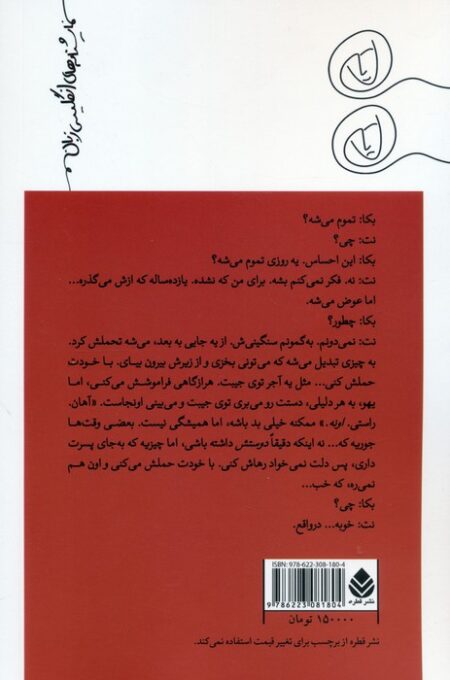 نمایشنامه‌های انگلیسی زبان
بکا: تموم می‌شه؟
نت: چی؟
بکا: این احساس. یه روزی تموم می‌شه؟
نت: نه. فکر نمی‌کنم بشه. برای من که نشده. یازده‌ساله که ازش می‌گذره...
اما عوض می‌شه.
بکا: چطور؟
نت: نمی‌دونم. به‌گمونم سنگینی‌ش. از یه جایی به بعد، می‌شه تحملش کرد.
به چیزی تبدیل می‌شه که می‌تونی بخزی و از زیرش بیرون بیای. با خودت
حملش کنی... مثل یه آجر توی جیبت. هرازگاهی فراموشش می‌کنی، اما
یهو، به هر دلیلی، دستت رو می‌بری توی جیبت و می‌بینی اونجاست. «آهان.
راستی. اونه.» ممکنه خیلی بد باشه، اما همیشگی نیست. بعضی وقت‌ها
جوریه که... نه اینکه دقیقاً دوستش داشته باشی، اما چیزیه که به‌جای پسرت
داری، پس دلت نمی‌خواد رهاش کنی. با خودت حملش می‌کنی و اون هم
نمی‌ره، که خب...
بکا: چی؟
نت: خوبه... درواقع.
ISBN: 978-622-308-180-4
9 786223 081804
۱۵۰۰۰۰ تومان
نشر قطره
نشر قطره از برچسب برای تغییر قیمت استفاده نمی‌کند.